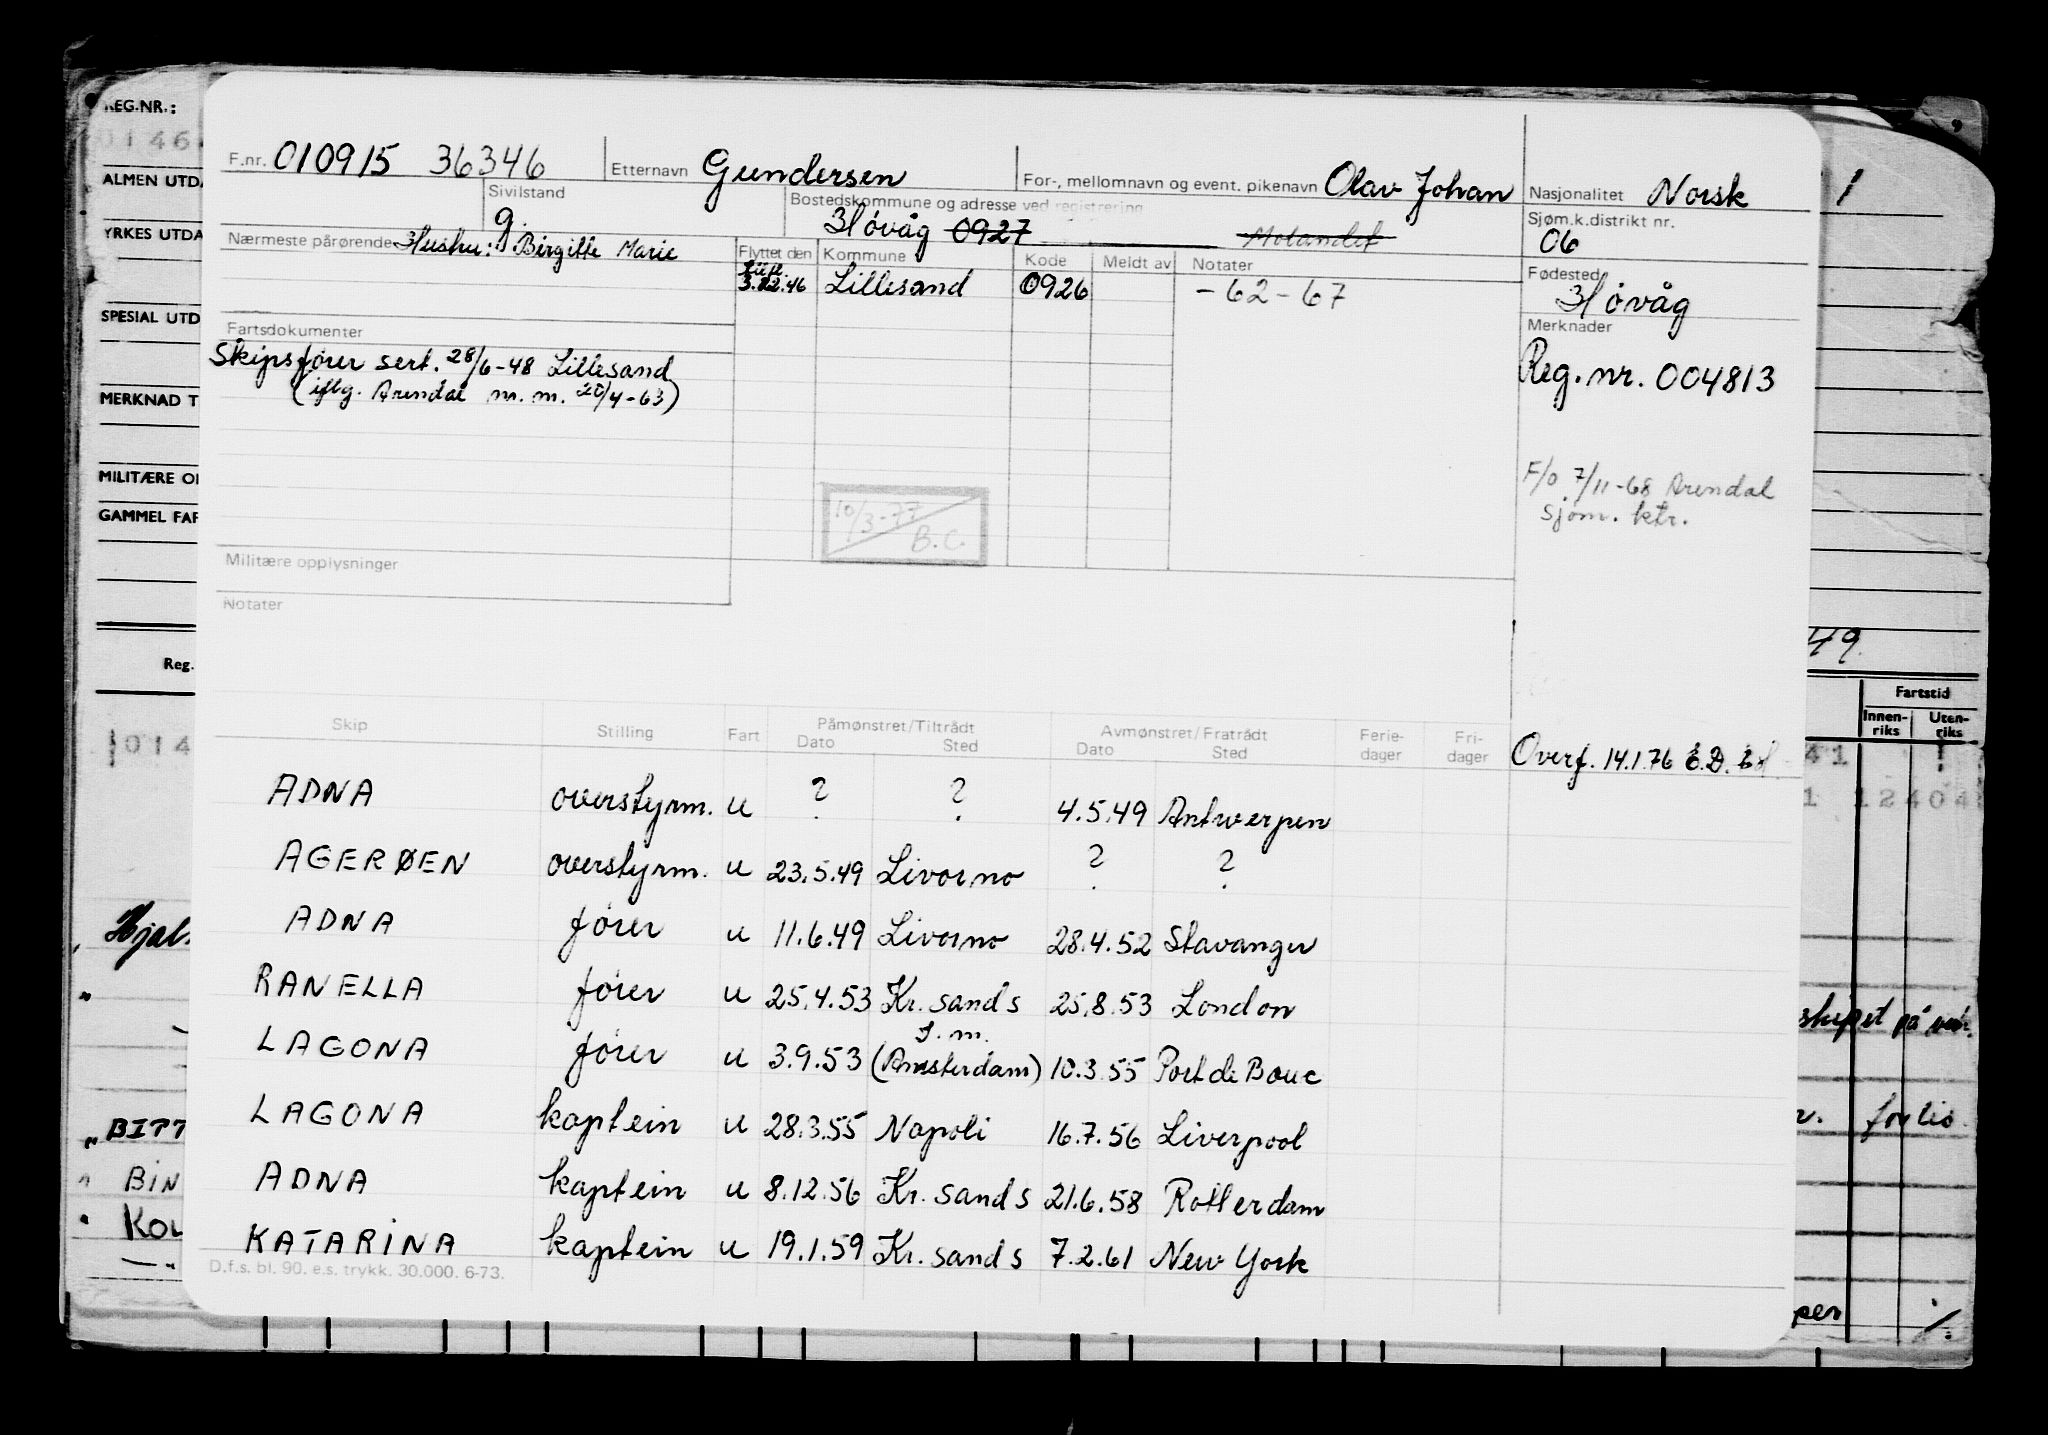 REG.NR.:
0146
ALMEN UTDA
YRKES UTDA
SPESIAL UTD
MERKNAD T
MILITÆRE O
GAMMEL FAR
Reg.
014
Hjal.
BITT
BIN
KOL
F.nr. 010915 36346 Etternavn Gundersen For-, mellomnavn og event. pikenavn Olav Johan Nasjonalitet Norsk
Sivilstand g. Bostedskommune og adresse ved registrering Høvåg 0927 Molandet Sjøm.k.distrikt nr. 06
Nærmeste pårørende Hustru: Birgitte Marie
Flyttet den Kommune Kode Meldt av Notater
3.12.46 Lillesand 0926 - 62 - 67
Fødested Høvåg
Merknader
Reg. nr. 004813
Fartsdokumenter
Skipsfører sert. 28/6-48 Lillesand
(iflg. Arendal m.m. 20/4-63)
F/o 7/11-68 Arendal
sjøm. ktr.
10/3-77 B.C.
Militære opplysninger
Notater
Skip Stilling Fart Påmønstret/Tiltrådt Avmønstret/Fratrådt Ferie- Fri-
Dato Sted Dato Sted dager dager
Overf. 14.1.76 E.D.
ADNA overstyrm. u ? ? 4.5.49 Antwerpen
AGERØEN overstyrm. u 23.5.49 Livorno ? ?
ADNA fører u 11.6.49 Livorno 28.4.52 Stavanger
RANELLA fører u 25.4.53 Kr. sand s 25.8.53 London
LAGONA fører u 3.9.53 f.m. (Amsterdam) 10.3.55 Port de Bouc
LAGONA kaptein u 28.3.55 Napoli 16.7.56 Liverpool
ADNA kaptein u 8.12.56 Kr. sand s 21.6.58 Rotterdam
KATARINA kaptein u 19.1.59 Kr. sand s 7.2.61 New York
D.f.s. bl. 90. e.s. trykk. 30.000. 6-73.
1
49.
Fartstid
Innen-riks Uten-riks
41
1 12404
skipet på
per